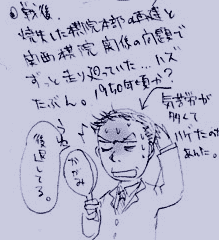 ●戦後。
焼失した棋院本部の再建と
関西棋院 関係の問題で
ずっと走り廻っていた…ハズ
たぶん。1950年頃か?
気苦労が
多くて
ハゲたのも
あんた。
うむ
かがみ
後退してる。